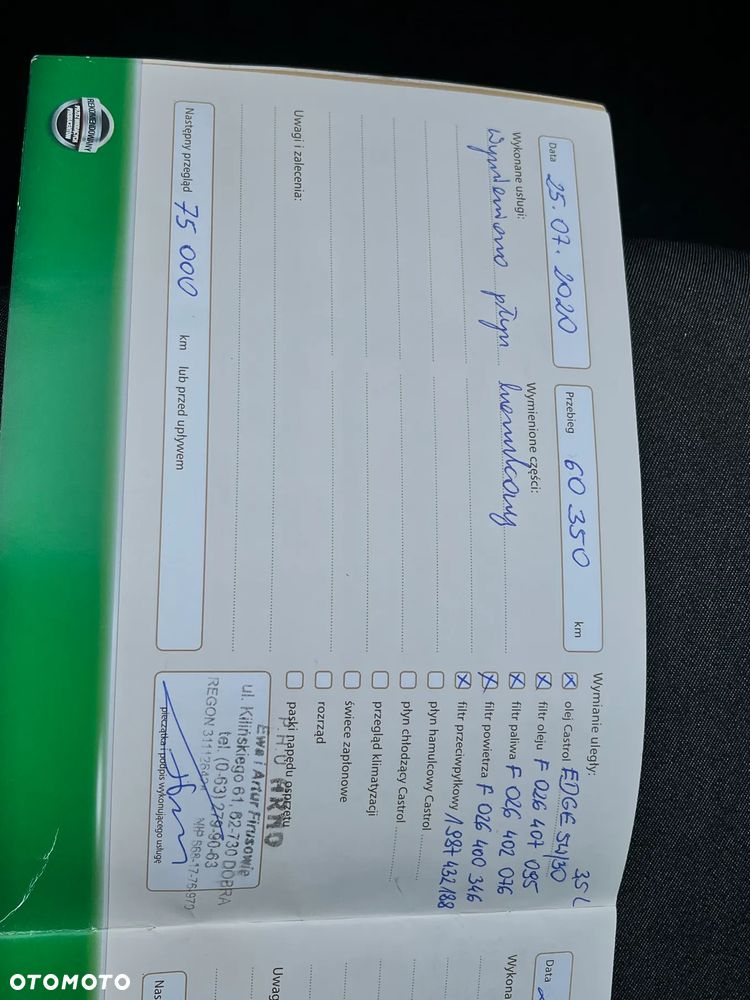 Data 25.07.2020
Przebieg 60 350 km
Wykonane usługi:
Wymienione części:
Wymieniono płyn hamulcowy
Uwagi i zalecenia:
Następny przegląd 75 000 km lub przed upływem
Wymianie uległy:
olej Castrol EDGE 5W30 3,5 L
filtr oleju F 026 407 095
filtr paliwa F 026 402 076
filtr powietrza F 026 400 346
filtr przeciwpyłkowy 1 987 432 188
płyn hamulcowy Castrol
płyn chłodzący Castrol
przegląd klimatyzacji
świece zapłonowe
rozrząd
paski napędu osprzętu
P.H.U
Ewa i Artur Firusowie
ul. Kilińskiego 61, 62-730 DOBRA
tel. (0-63) 279-90-63
REGON
NIP 668-17-76-970
pieczątka i podpis wykonującego usługę
REKOMENDOWANY
PRZEZ WIODĄCYCH
PRODUCENTÓW
Data
Wykona
Uwag
Nas
OTOMOTO